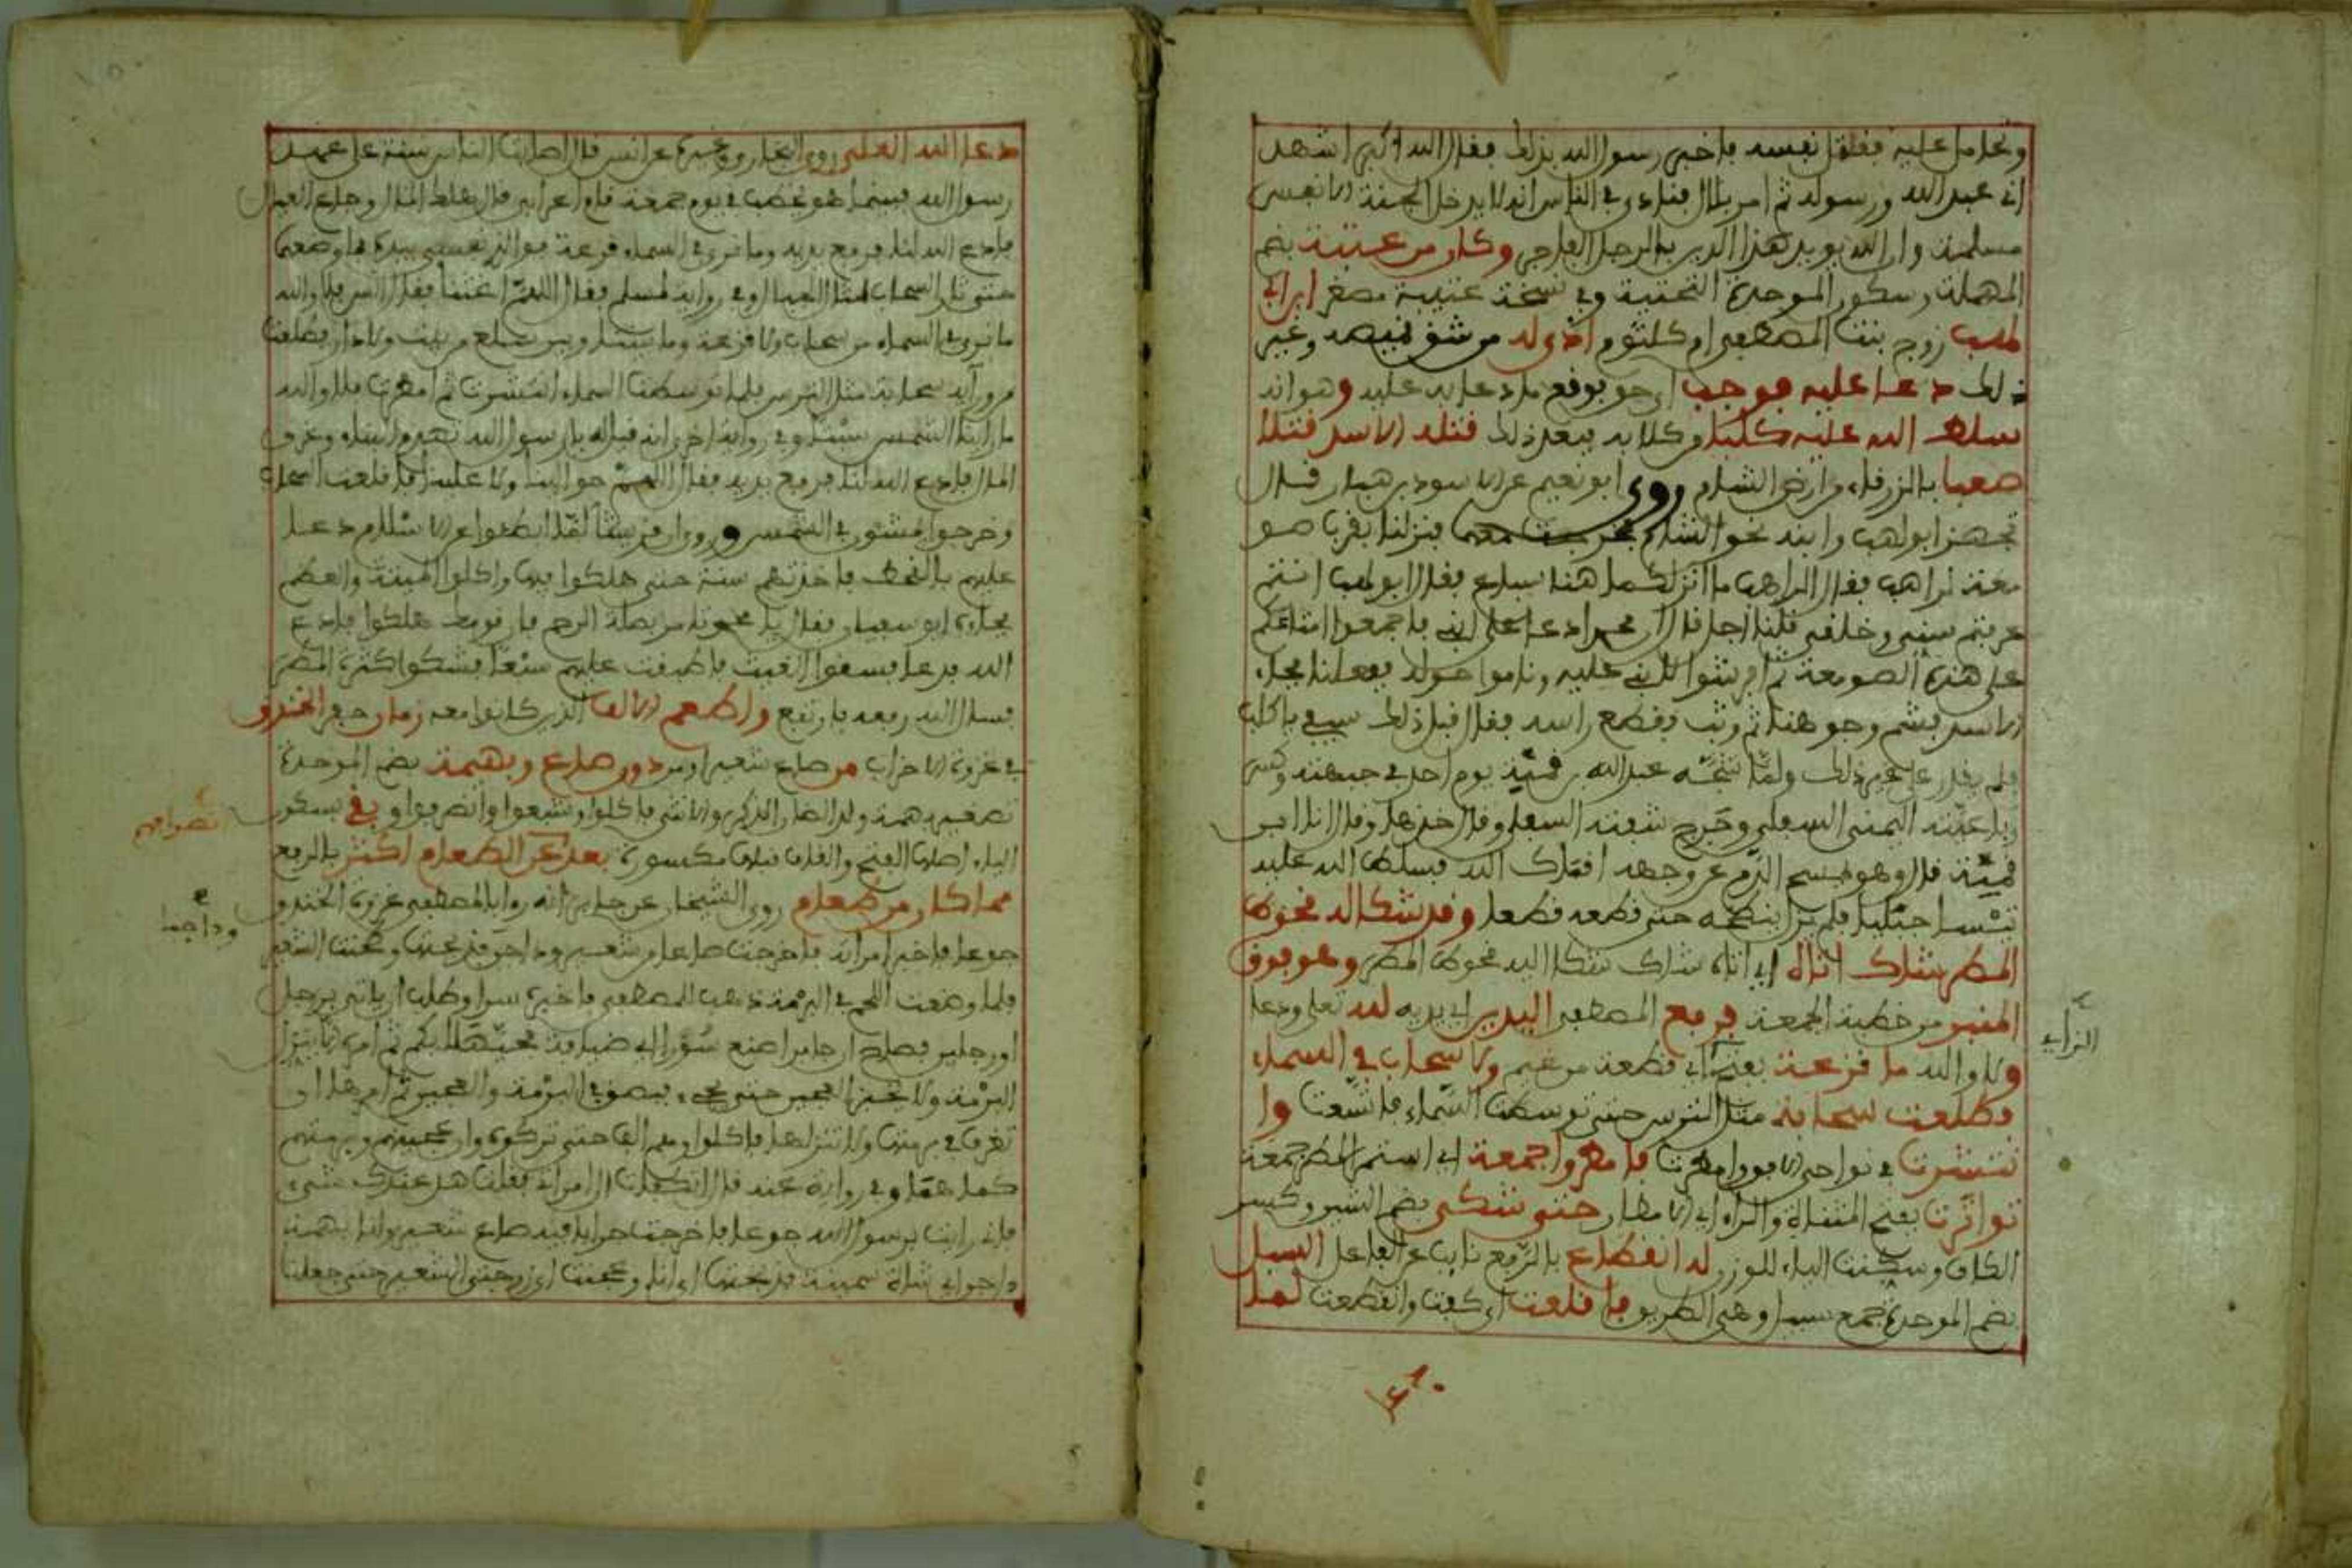 وتحامل عليه فقتل نفسه فاخبر رسول الله بذلك فقال الله اكبر اشهد
اني عبد الله ورسوله ثم امر بلالا فنادى في الناس انه لا يدخل الجنة الا نفس
مسلمة وان الله يويد هذا الدين بالرجل الفاجر وكان من عتبة بضم
المهملة وسكون الموحدة التحتية وفي نسخة عتيبة مصغر ابن ابي
لهب زوج بنت المصطفى ام كلثوم اذى له من شق قميصه وغير
ذلك دعا عليه فوجب اي حق بوقوع ما دعا به عليه وهو انه
سلط الله عليه كلبا وكلابه فبعد ذلك قتله الاسد قتلا
صعبا بالزرقاء من ارض الشام روى ابو نعيم عن الاسود بن هبار قال
تجهز ابو لهب وابنه نحو الشام فخرجت معهما فنزلنا بقرب صو
معة راهب فقال الراهب ما انزلكم هنا هنا سباع فقال ابو لهب انتم
عرفتم سني وحقي قلنا اجل قال ان محمدا دعا على ابني فاجمعوا متاعكم
على هذه الصومعة ثم افرشوا لابني عليه وناموا حوله ففعلنا فجاء
الاسد فشم وجوهنا ثم وثب فقطع راسه فقال قبل ذلك سيفي يا كلب
فلم يقدر على غير ذلك ولما شجه عبد الله بن قميئة يوم احد في جبهته وكسر
رباعيته اليمنى السفلى وجرح شفته السفلى وقال خذها وانا ابن
قميئة قال وهو يمسح الدم عن وجهه اقماك الله فسلط الله عليه
تيسا جبليا فلم يزل ينطحه حتى قطعه قطعا وقد شكا له قحوط
المطر شاك اتاه اي اتاه شاك شكا اليه قحوط المطر وهو فوق
المنبر من خطبة الجمعة فرفع المصطفى اليدين اي يديه لله تعلى ودعا
ولا والله ما قزعة بفتح اي قطعة من غيم ولا سحاب في السماء
الزاي
وطلعت سحابة مثل الترس حتى توسطت السماء فاتسعت وا
نتشرت في نواحي الافق وامطرت فامطروا جمعة اي استمر المطر جمعة
تواترت بفتح المثناة والراء اي الامطار حتى شكي بضم الشين وكسر
الكاف وسكنت الياء للوزن له انقطاع بالرفع نايب عن الفاعل السبل
بضم الموحدة جمع سبيل وهي الطريق فاقلعت اي كفت وانقطعت لما
دعا الله العلي روى البخاري وغيره عن انس قال اصابت الناس سنة على عهد
رسول الله فبينما هو يخطب في يوم جمعة قام اعرابي قال هلك المال وجاع العيال
فادع الله لنا فرفع يديه وما نرى في السماء قزعة فو الذي نفسي بيده ما وضعها
حتى ثار السحاب امثال الجبال وفي رواية لمسلم فقال اللهم اغثنا فقال انس فلا والله
ما نرى في السماء من سحاب ولا قزعة وما بيننا وبين سلع من بيت ولا دار فطلعت
من ورائه سحابة مثل الترس فلما توسطت السماء انتشرت ثم امطرت فلا والله
ما راينا الشمس سبتا وفي رواية اخرى انه قيل له يا رسول الله تهدم البناء وغرق
المال فادع الله لنا فرفع يديه فقال اللهم حوالينا ولا علينا فاقلعت السحاب
وخرجوا يمشون في الشمس وروى ان قريشا لما ابطئوا عن الاسلام دعا
عليهم بالقحط فاخذتهم سنة حتى هلكوا فيها واكلوا الميتة والعظم
فجاءه ابو سفيان فقال يا محمد تامر بصلة الرحم وان قومك هلكوا فادع
الله فدعا فسقوا الغيث فاطبقت عليهم سبعا فشكوا كثرة المطر
فسال الله رفعه فارتفع واطعم الالف الذين كانوا معه زمان حفر الخندق
في غزوة الاحزاب من صاع شعير او من دون صاع وبهمة بضم الموحدة
تصغير بهمة ولد الضان الذكر والانثى فاكلوا وشبعوا وانصرفوا وبقي بسكون
الياء اصلها الفتح والقاف قبلها مكسورة بعد عن الطعام اكثر بالرفع
مما كان من طعام روى الشيخان عن جابر انه راى بالمصطفى في غزوة الخندق
جوعا فاخبر امراته فاخرجت صاعا من شعير وداجن فذبحتها وطحنت الشعير
وداجنا
فلما وضعت اللحم في البرمة ذهب للمصطفى فاخبره سرا وطلب ان ياتي برجل
او رجلين فصاح ان جابرا صنع سورا اي ضيافة فحيهلا بكم ثم امره الا ينزل
البرمة ولا يخبز العجين حتى يجيء فبصق في البرمة والعجين ثم امرها ان
تغرف من برمتها ولا تنزلها فاكلوا وهم الف حتى تركوه وان عجينهم وبرمتهم
كما هما وفي رواية عنه قال انكفات الى امراتي فقلت هل عندك شيء
فاني رايت برسول الله جوعا فاخرجت جرابا فيه صاع شعير ولنا بهيمة
داجن اي شاة سمينة فذبحتها اي انا وطحنت اي زوجتي الشعير حتى جعلنا